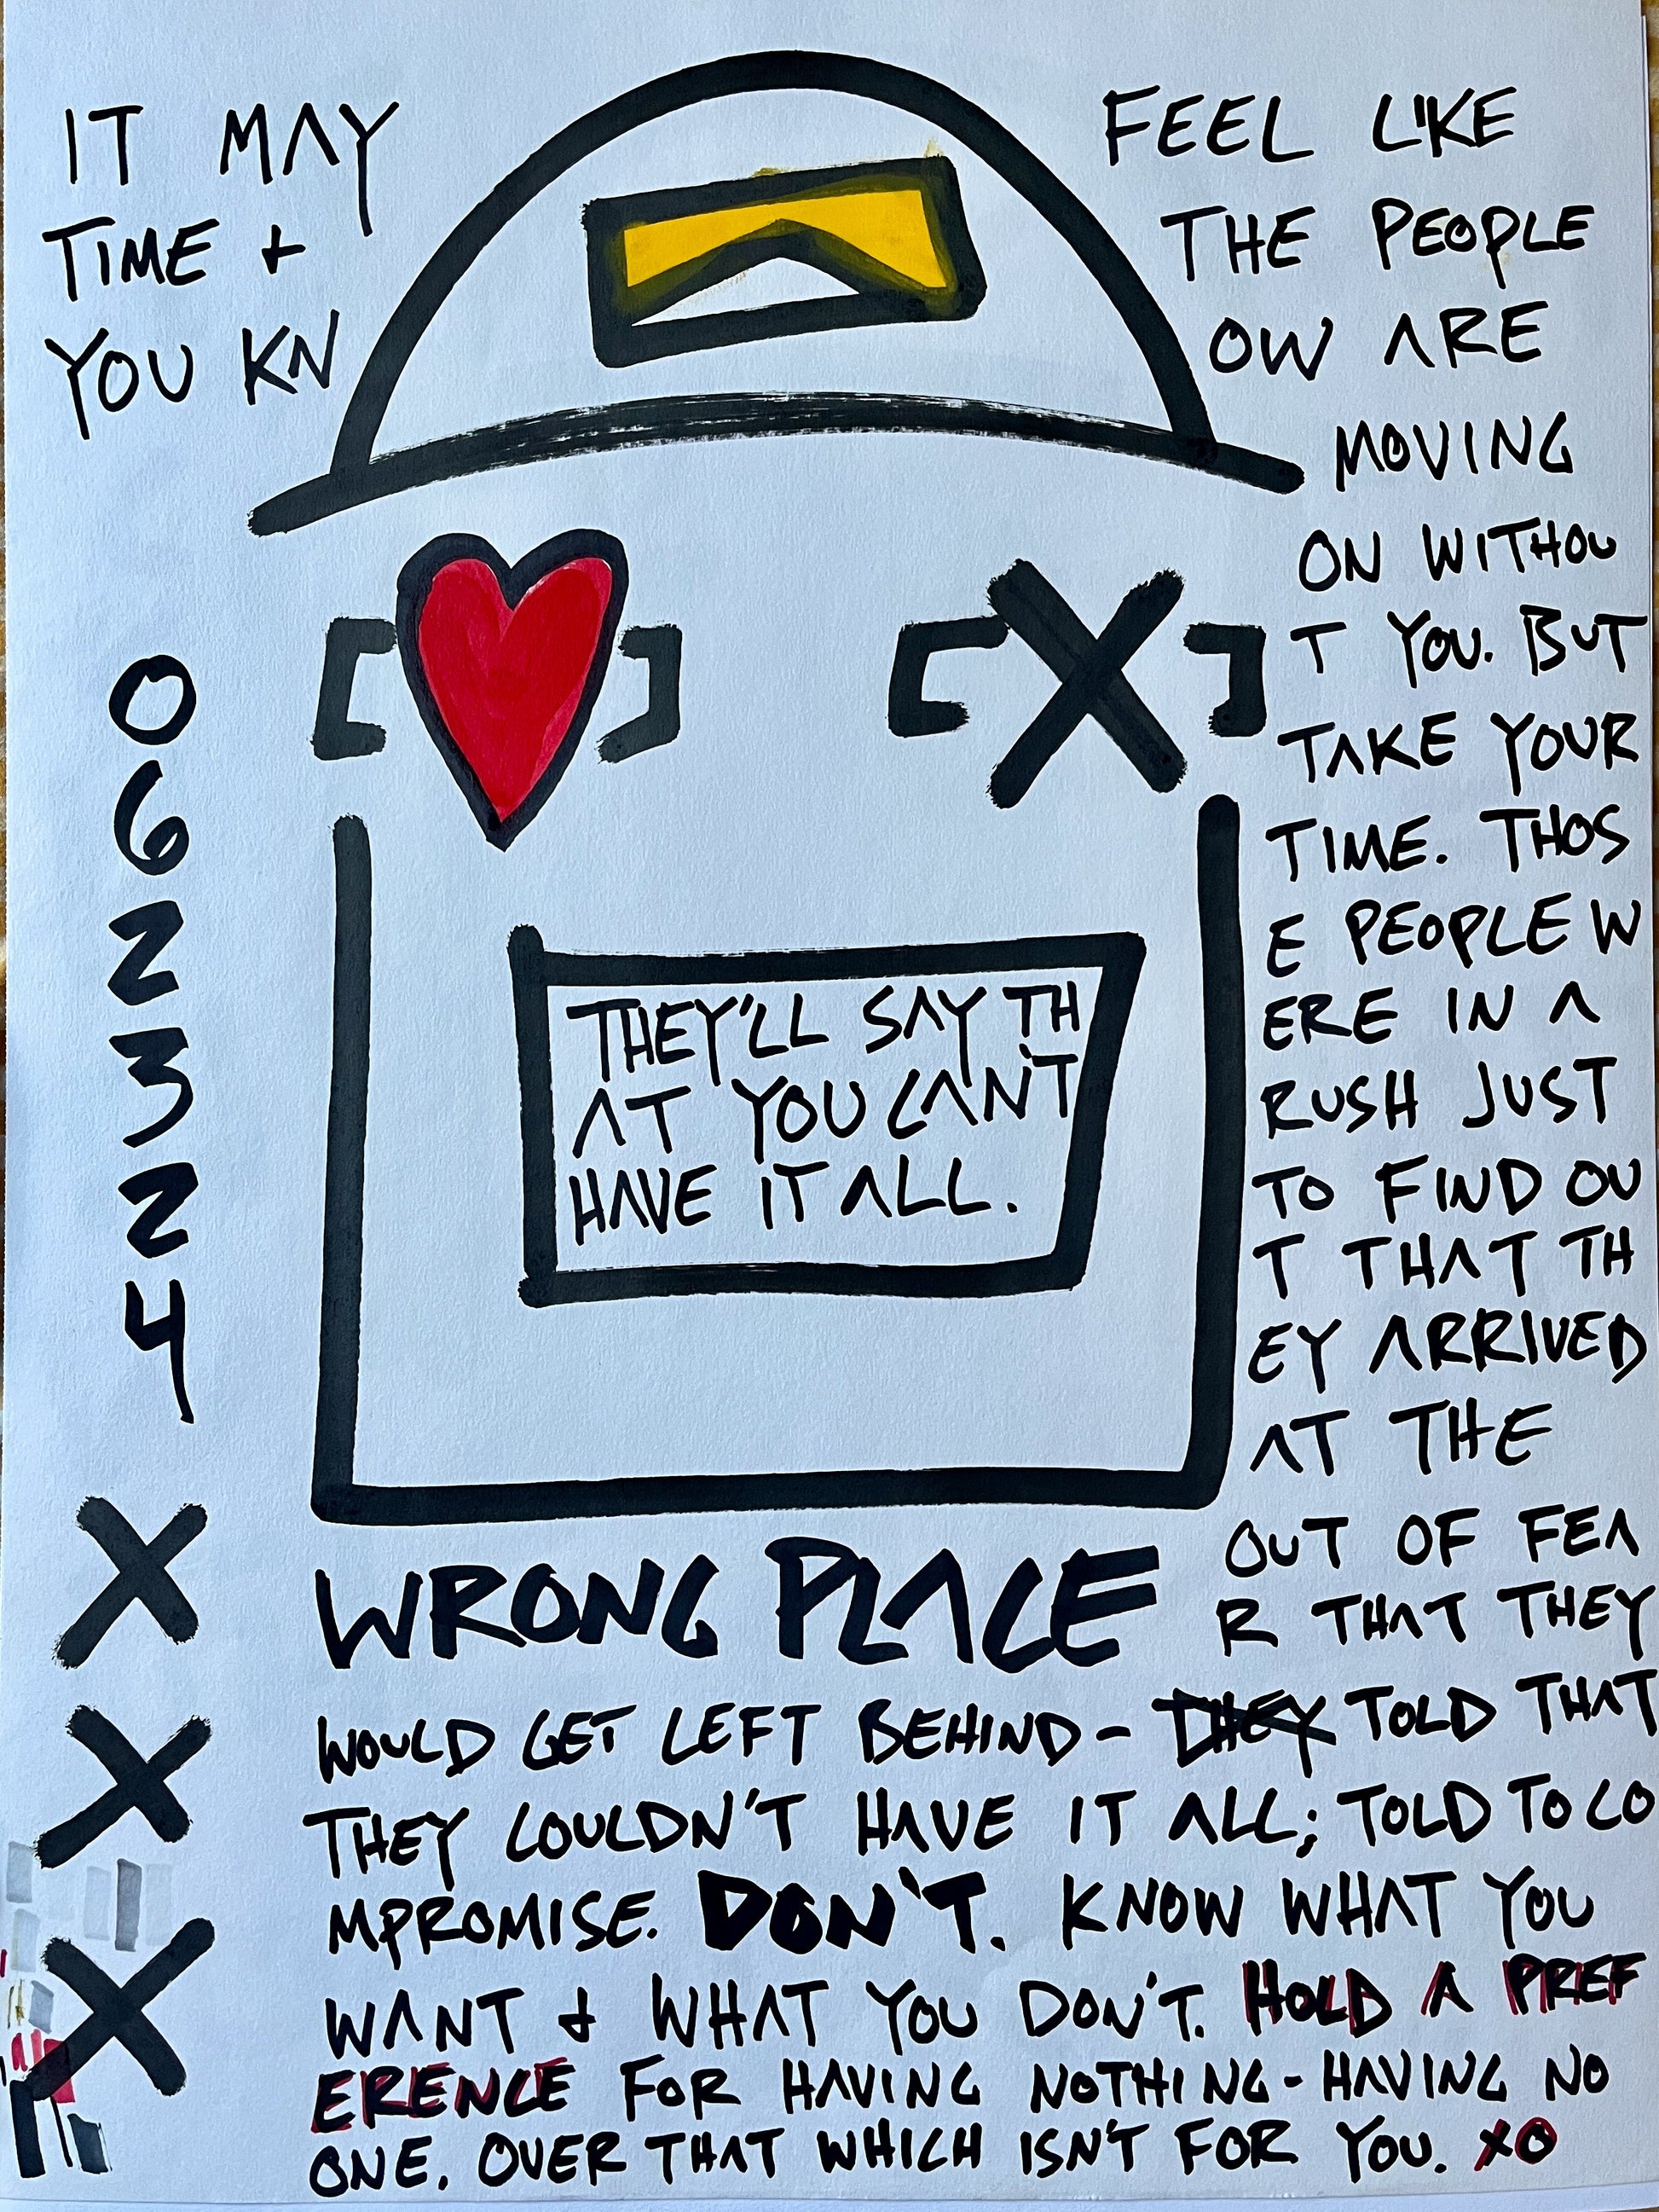 IT MAY FEEL LIKE
TIME + THE PEOPLE
YOU KNOW ARE
MOVING
ON WITHOU
T YOU. BUT
TAKE YOUR
TIME. THOS
E PEOPLE W
ERE IN A
RUSH JUST
TO FIND OU
T THAT TH
EY ARRIVED
AT THE
WRONG PLACE
OUT OF FEA
R THAT THEY
WOULD GET LEFT BEHIND - THEY TOLD THAT
THEY COULDN'T HAVE IT ALL; TOLD TO CO
MPROMISE. DON'T. KNOW WHAT YOU
WANT + WHAT YOU DON'T. HOLD A PREF
ERENCE FOR HAVING NOTHING - HAVING NO
ONE. OVER THAT WHICH ISN'T FOR YOU. XO
THEY'LL SAY TH
AT YOU CAN'T
HAVE IT ALL.
0
6
2
3
2
4
X
X
X
[♥] [X]